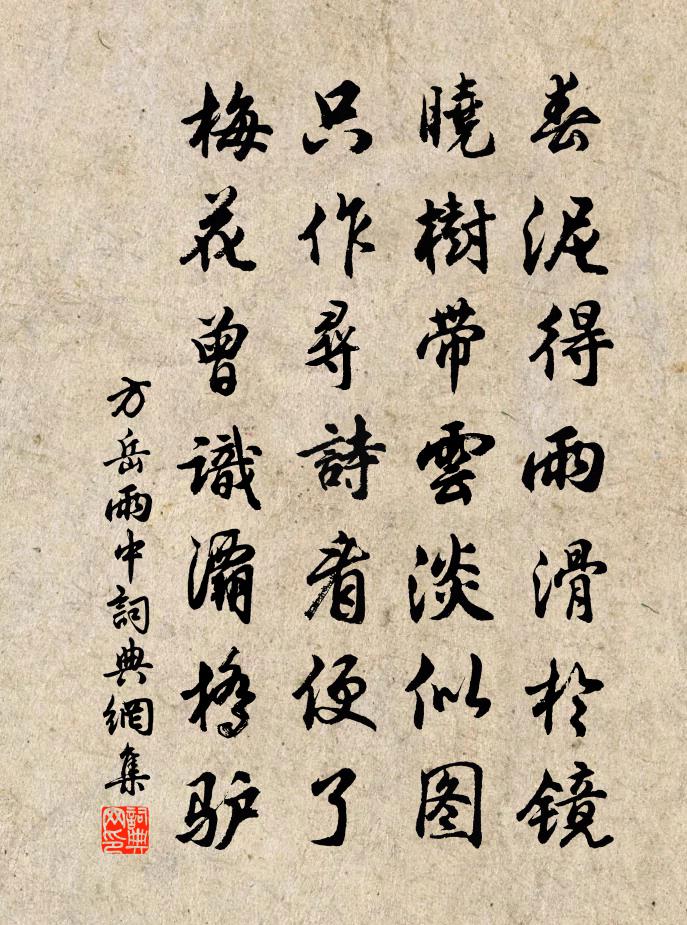 春泥得雨滑於镜
曉樹帶雲淡似图
只作尋詩看便了
梅花曾識灞橋驴
方岳雨中詞典網集
詞典網印